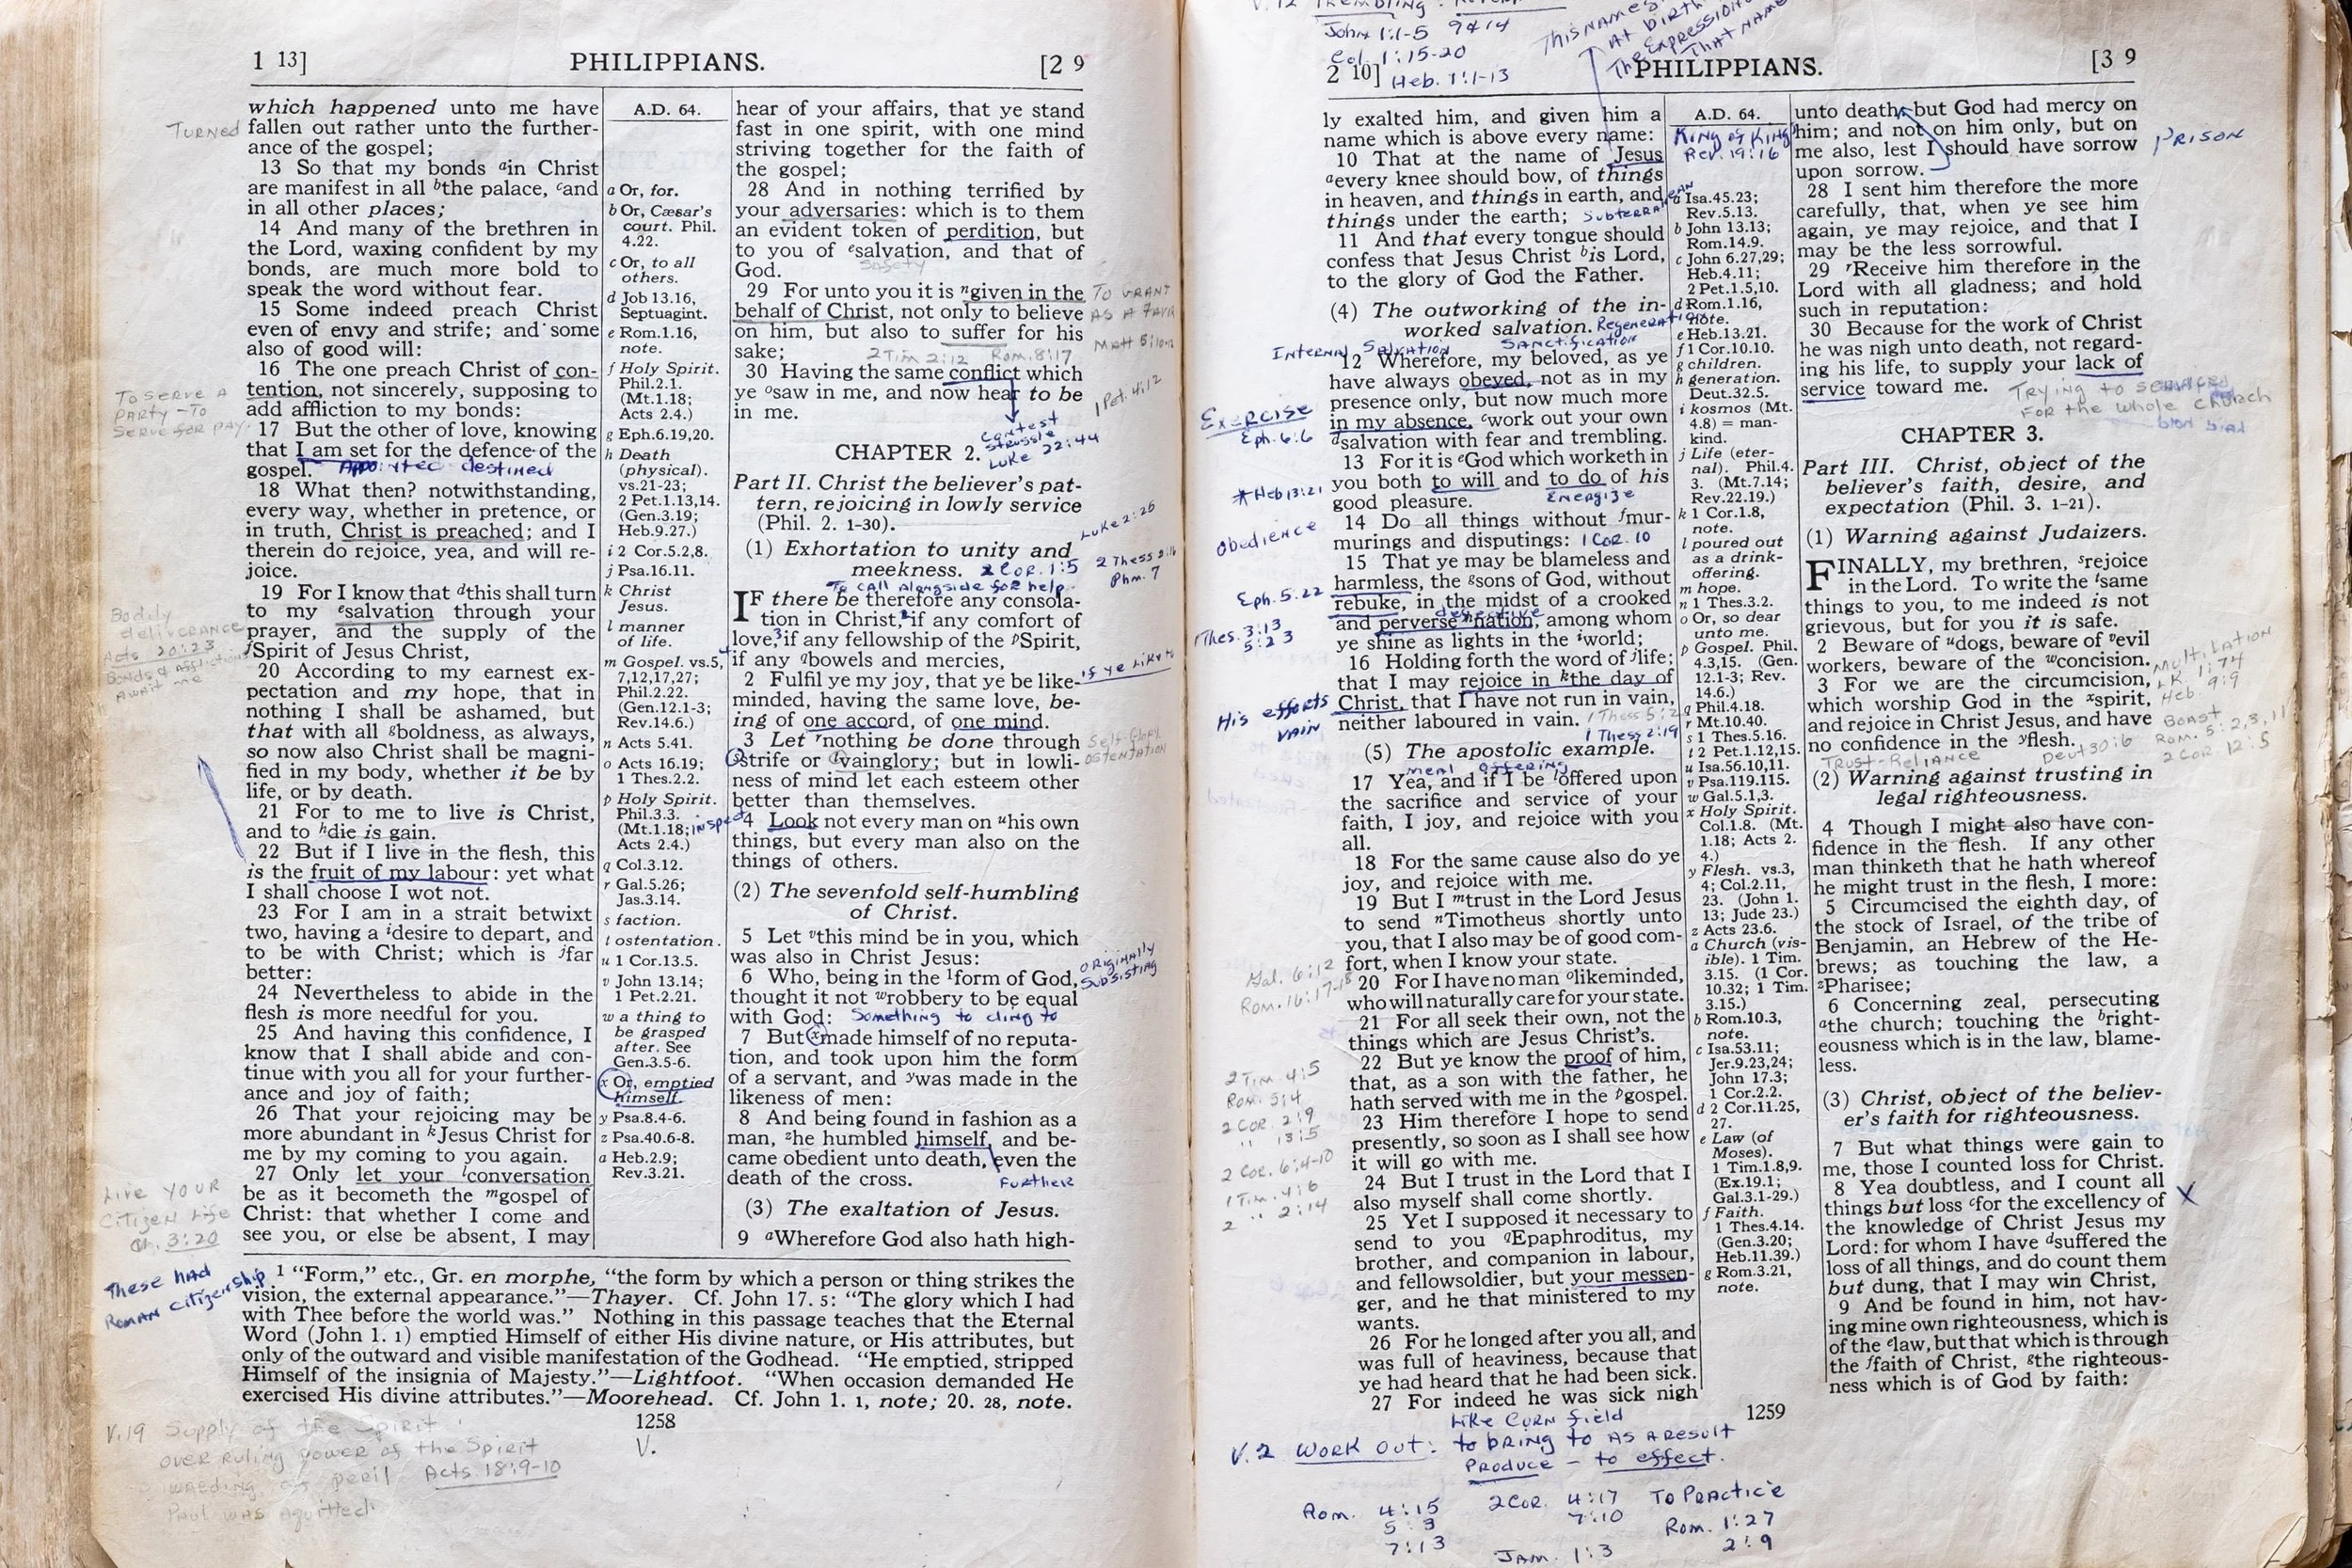 1 13]
PHILIPPIANS.
[2 9
which happened unto me have
TURNED
fallen out rather unto the further-
ance of the gospel;
13 So that my bonds ᵃin Christ
are manifest in all ᵇthe palace, ᶜand
in all other places;
14 And many of the brethren in
the Lord, waxing confident by my
bonds, are much more bold to
speak the word without fear.
15 Some indeed preach Christ
even of envy and strife; and some
also of good will:
16 The one preach Christ of con-
tention, not sincerely, supposing to
add affliction to my bonds:
To SERVE A
PARTY - To
SERVE FOR PAY.
17 But the other of love, knowing
that I am set for the defence of the
gospel.
Appointed destined
18 What then? notwithstanding,
every way, whether in pretence, or
in truth, Christ is preached; and I
therein do rejoice, yea, and will re-
joice.
19 For I know that ᵈthis shall turn
to my ᵉsalvation through your
prayer, and the supply of the
ᶠSpirit of Jesus Christ,
Bodily
deliverance
Acts 20:23
Bonds & Afflictions
Await me
20 According to my earnest ex-
pectation and my hope, that in
nothing I shall be ashamed, but
that with all ᵍboldness, as always,
so now also Christ shall be magni-
fied in my body, whether it be by
life, or by death.
21 For to me to live is Christ,
and to ʰdie is gain.
22 But if I live in the flesh, this
is the fruit of my labour: yet what
I shall choose I wot not.
23 For I am in a strait betwixt
two, having a ⁱdesire to depart, and
to be with Christ; which is ʲfar
better:
24 Nevertheless to abide in the
flesh is more needful for you.
25 And having this confidence, I
know that I shall abide and con-
tinue with you all for your further-
ance and joy of faith;
26 That your rejoicing may be
more abundant in ᵏJesus Christ for
me by my coming to you again.
27 Only let your ˡconversation
be as it becometh the ᵐgospel of
Christ: that whether I come and
see you, or else be absent, I may
Live YOUR
Citizen Life
Ch. 3:20
These had
Roman citizenship
A.D. 64.
a Or, for.
b Or, Cæsar's
court. Phil.
4.22.
c Or, to all
others.
d Job 13.16,
Septuagint.
e Rom.1.16,
note.
f Holy Spirit.
Phil.2.1.
(Mt.1.18;
Acts 2.4.)
g Eph.6.19,20.
h Death
(physical).
vs.21-23;
2 Pet.1.13,14.
(Gen.3.19;
Heb.9.27.)
i 2 Cor.5.2,8.
j Psa.16.11.
k Christ
Jesus.
l manner
of life.
m Gospel. vs.5,
7,12,17,27;
Phil.2.22.
(Gen.12.1-3;
Rev.14.6.)
n Acts 5.41.
o Acts 16.19;
1 Thes.2.2.
p Holy Spirit.
Phil.3.3.
(Mt.1.18;
Acts 2.4.)
inspect
q Col.3.12.
r Gal.5.26;
Jas.3.14.
s faction.
t ostentation.
u 1 Cor.13.5.
v John 13.14;
1 Pet.2.21.
w a thing to
be grasped
after. See
Gen.3.5-6.
x Or, emptied
himself.
y Psa.8.4-6.
z Psa.40.6-8.
a Heb.2.9;
Rev.3.21.
hear of your affairs, that ye stand
fast in one spirit, with one mind
striving together for the faith of
the gospel;
28 And in nothing terrified by
your adversaries: which is to them
an evident token of perdition, but
to you of ᵉsalvation, and that of
God.
Safety
29 For unto you it is ⁿgiven in the
behalf of Christ, not only to believe
on him, but also to suffer for his
sake;
To GRANT
AS A FAVOR
2 Tim 2:12 Rom. 8:17
30 Having the same conflict which
ye ᵒsaw in me, and now hear to be
in me.
1 Pet. 4:12
contest
struggle
Luke 22:44
CHAPTER 2.
Part II. Christ the believer's pat-
tern, rejoicing in lowly service
(Phil. 2. 1-30).
Luke 2:25
(1) Exhortation to unity and
meekness.
2 Cor. 1:5
2 Thess 2:16
Phm. 7
To CALL Alongside for help
IF there be therefore any consola-
tion in Christ, if any comfort of
love, if any fellowship of the ᵖSpirit,
if any ᑫbowels and mercies,
2 Fulfil ye my joy, that ye be like-
minded, having the same love, be-
ing of one accord, of one mind.
3 Let ʳnothing be done through
ˢstrife or ᵗvainglory; but in lowli-
ness of mind let each esteem other
better than themselves.
Self-Glory
OSTENTATION
4 Look not every man on ᵘhis own
things, but every man also on the
things of others.
(2) The sevenfold self-humbling
of Christ.
5 Let ᵛthis mind be in you, which
was also in Christ Jesus:
6 Who, being in the ¹form of God,
thought it not ʷrobbery to be equal
with God:
ORIGINALLY
SUBSISTING
Something to cling to
7 But ˣmade himself of no reputa-
tion, and took upon him the form
of a servant, and ʸwas made in the
likeness of men:
8 And being found in fashion as a
man, ᶻhe humbled himself, and be-
came obedient unto death, even the
death of the cross.
FURTHER
(3) The exaltation of Jesus.
9 ᵃWherefore God also hath high-
1 "Form," etc., Gr. en morphe, "the form by which a person or thing strikes the
vision, the external appearance."—Thayer. Cf. John 17. 5: "The glory which I had
with Thee before the world was." Nothing in this passage teaches that the Eternal
Word (John 1. 1) emptied Himself of either His divine nature, or His attributes, but
only of the outward and visible manifestation of the Godhead. "He emptied, stripped
Himself of the insignia of Majesty."—Lightfoot. "When occasion demanded He
exercised His divine attributes."—Moorehead. Cf. John 1. 1, note; 20. 28, note.
1258
V.
V.19 Supply of the Spirit
over ruling power of the Spirit
peril Acts 18:9-10
Paul was aquitted
V.12 Trembling:
John 1:1-5 9&14
Col. 1:15-20
Heb. 1:1-13
This NAMES
At birth
The Expression
That NAME
2 10]
PHILIPPIANS.
[3 9
ly exalted him, and given him a
name which is above every name:
10 That at the name of Jesus
ᵃevery knee should bow, of things
in heaven, and things in earth, and
things under the earth;
SUBTERRANEAN
11 And that every tongue should
confess that Jesus Christ ᵇis Lord,
to the glory of God the Father.
(4) The outworking of the in-
worked salvation.
Regeneration
INTERNAL SALVATION
SANCTIFICATION
12 Wherefore, my beloved, as ye
have always obeyed, not as in my
presence only, but now much more
in my absence, ᶜwork out your own
ᵈsalvation with fear and trembling.
Exercise
Eph. 6:6
13 For it is ᵉGod which worketh in
you both to will and to do of his
good pleasure.
*Heb 13:21
Energize
14 Do all things without ᶠmur-
murings and disputings:
1 Cor. 10
Obedience
15 That ye may be blameless and
harmless, the ᵍsons of God, without
rebuke, in the midst of a crooked
and perverse ʰnation, among whom
ye shine as lights in the ⁱworld;
Eph. 5:22
1 Thes. 3:13
5:23
16 Holding forth the word of ʲlife;
that I may rejoice in ᵏthe day of
Christ, that I have not run in vain,
neither laboured in vain.
His efforts
VAIN
1 Thess 2:19
(5) The apostolic example.
MEAL OFFERING
17 Yea, and if I be ˡoffered upon
the sacrifice and service of your
faith, I joy, and rejoice with you
all.
18 For the same cause also do ye
joy, and rejoice with me.
19 But I ᵐtrust in the Lord Jesus
to send ⁿTimotheus shortly unto
you, that I also may be of good com-
fort, when I know your state.
Gal. 6:12
Rom. 16:17-18
20 For I have no man ᵒlikeminded,
who will naturally care for your state.
21 For all seek their own, not the
things which are Jesus Christ's.
22 But ye know the proof of him,
that, as a son with the father, he
hath served with me in the ᵖgospel.
2 Tim. 4:5
Rom. 5:4
2 COR. 2:9
" 13:5
2 Cor. 6:4-10
1 Tim. 4:6
2 " 2:14
23 Him therefore I hope to send
presently, so soon as I shall see how
it will go with me.
24 But I trust in the Lord that I
also myself shall come shortly.
25 Yet I supposed it necessary to
send to you ᑫEpaphroditus, my
brother, and companion in labour,
and fellowsoldier, but your messen-
ger, and he that ministered to my
wants.
26 For he longed after you all, and
was full of heaviness, because that
ye had heard that he had been sick.
27 For indeed he was sick nigh
A.D. 64.
King of Kings
Rev. 19:16
a Isa.45.23;
Rev.5.13.
b John 13.13;
Rom.14.9.
c John 6.27,29;
Heb.4.11;
2 Pet.1.5,10.
d Rom.1.16,
note.
e Heb.13.21.
f 1 Cor.10.10.
g children.
h generation.
Deut.32.5.
i kosmos (Mt.
4.8) = man-
kind.
j Life (eter-
nal). Phil.4.
3. (Mt.7.14;
Rev.22.19.)
k 1 Cor.1.8,
note.
l poured out
as a drink-
offering.
m hope.
n 1 Thes.3.2.
o Or, so dear
unto me.
p Gospel. Phil.
4.3,15. (Gen.
12.1-3; Rev.
14.6.)
q Phil.4.18.
r Mt.10.40.
s 1 Thes.5.16.
t 2 Pet.1.12,15.
u Isa.56.10,11.
v Psa.119.115.
w Gal.5.1,3.
x Holy Spirit.
Col.1.8. (Mt.
1.18; Acts 2.
4.)
y Flesh. vs.3,
4; Col.2.11,
23. (John 1.
13; Jude 23.)
z Acts 23.6.
a Church (vis-
ible). 1 Tim.
3.15. (1 Cor.
10.32; 1 Tim.
3.15.)
b Rom.10.3,
note.
c Isa.53.11;
Jer.9.23,24;
John 17.3;
1 Cor.2.2.
d 2 Cor.11.25,
27.
e Law (of
Moses).
1 Tim.1.8,9.
(Ex.19.1;
Gal.3.1-29.)
f Faith.
1 Thes.4.14.
(Gen.3.20;
Heb.11.39.)
g Rom.3.21,
note.
unto death: but God had mercy on
him; and not on him only, but on
me also, lest I should have sorrow
upon sorrow.
PRISON
28 I sent him therefore the more
carefully, that, when ye see him
again, ye may rejoice, and that I
may be the less sorrowful.
29 ʳReceive him therefore in the
Lord with all gladness; and hold
such in reputation:
30 Because for the work of Christ
he was nigh unto death, not regard-
ing his life, to supply your lack of
service toward me.
Trying to
For the whole Church
CHAPTER 3.
Part III. Christ, object of the
believer's faith, desire, and
expectation (Phil. 3. 1-21).
(1) Warning against Judaizers.
FINALLY, my brethren, ˢrejoice
in the Lord. To write the ᵗsame
things to you, to me indeed is not
grievous, but for you it is safe.
2 Beware of ᵘdogs, beware of ᵛevil
workers, beware of the ʷconcision.
MUTILATION
3 For we are the circumcision,
which worship God in the ˣspirit,
and rejoice in Christ Jesus, and have
no confidence in the ʸflesh.
LK. 1:74
Heb. 9:9
BOAST
Rom. 5:2,3,11
2 COR 12:5
TRUST-RELIANCE
Deut 30:6
(2) Warning against trusting in
legal righteousness.
4 Though I might also have con-
fidence in the flesh. If any other
man thinketh that he hath whereof
he might trust in the flesh, I more:
5 Circumcised the eighth day, of
the stock of Israel, of the tribe of
Benjamin, an Hebrew of the He-
brews; as touching the law, a
ᶻPharisee;
6 Concerning zeal, persecuting
ᵃthe church; touching the ᵇright-
eousness which is in the law, blame-
less.
(3) Christ, object of the believ-
er's faith for righteousness.
7 But what things were gain to
me, those I counted loss for Christ.
8 Yea doubtless, and I count all
things but loss ᶜfor the excellency of
the knowledge of Christ Jesus my
Lord: for whom I have ᵈsuffered the
loss of all things, and do count them
but dung, that I may win Christ,
X
9 And be found in him, not hav-
ing mine own righteousness, which is
of the ᵉlaw, but that which is through
the ᶠfaith of Christ, ᵍthe righteous-
ness which is of God by faith:
1259
Like CORN field
V.2 WORK OUT: to bring to AS A RESULT
PRODUCE - to effect.
Rom. 4:15
5:3
7:13
2 COR. 4:17
7:10
JAM. 1:3
To Practice
Rom. 1:27
2:9